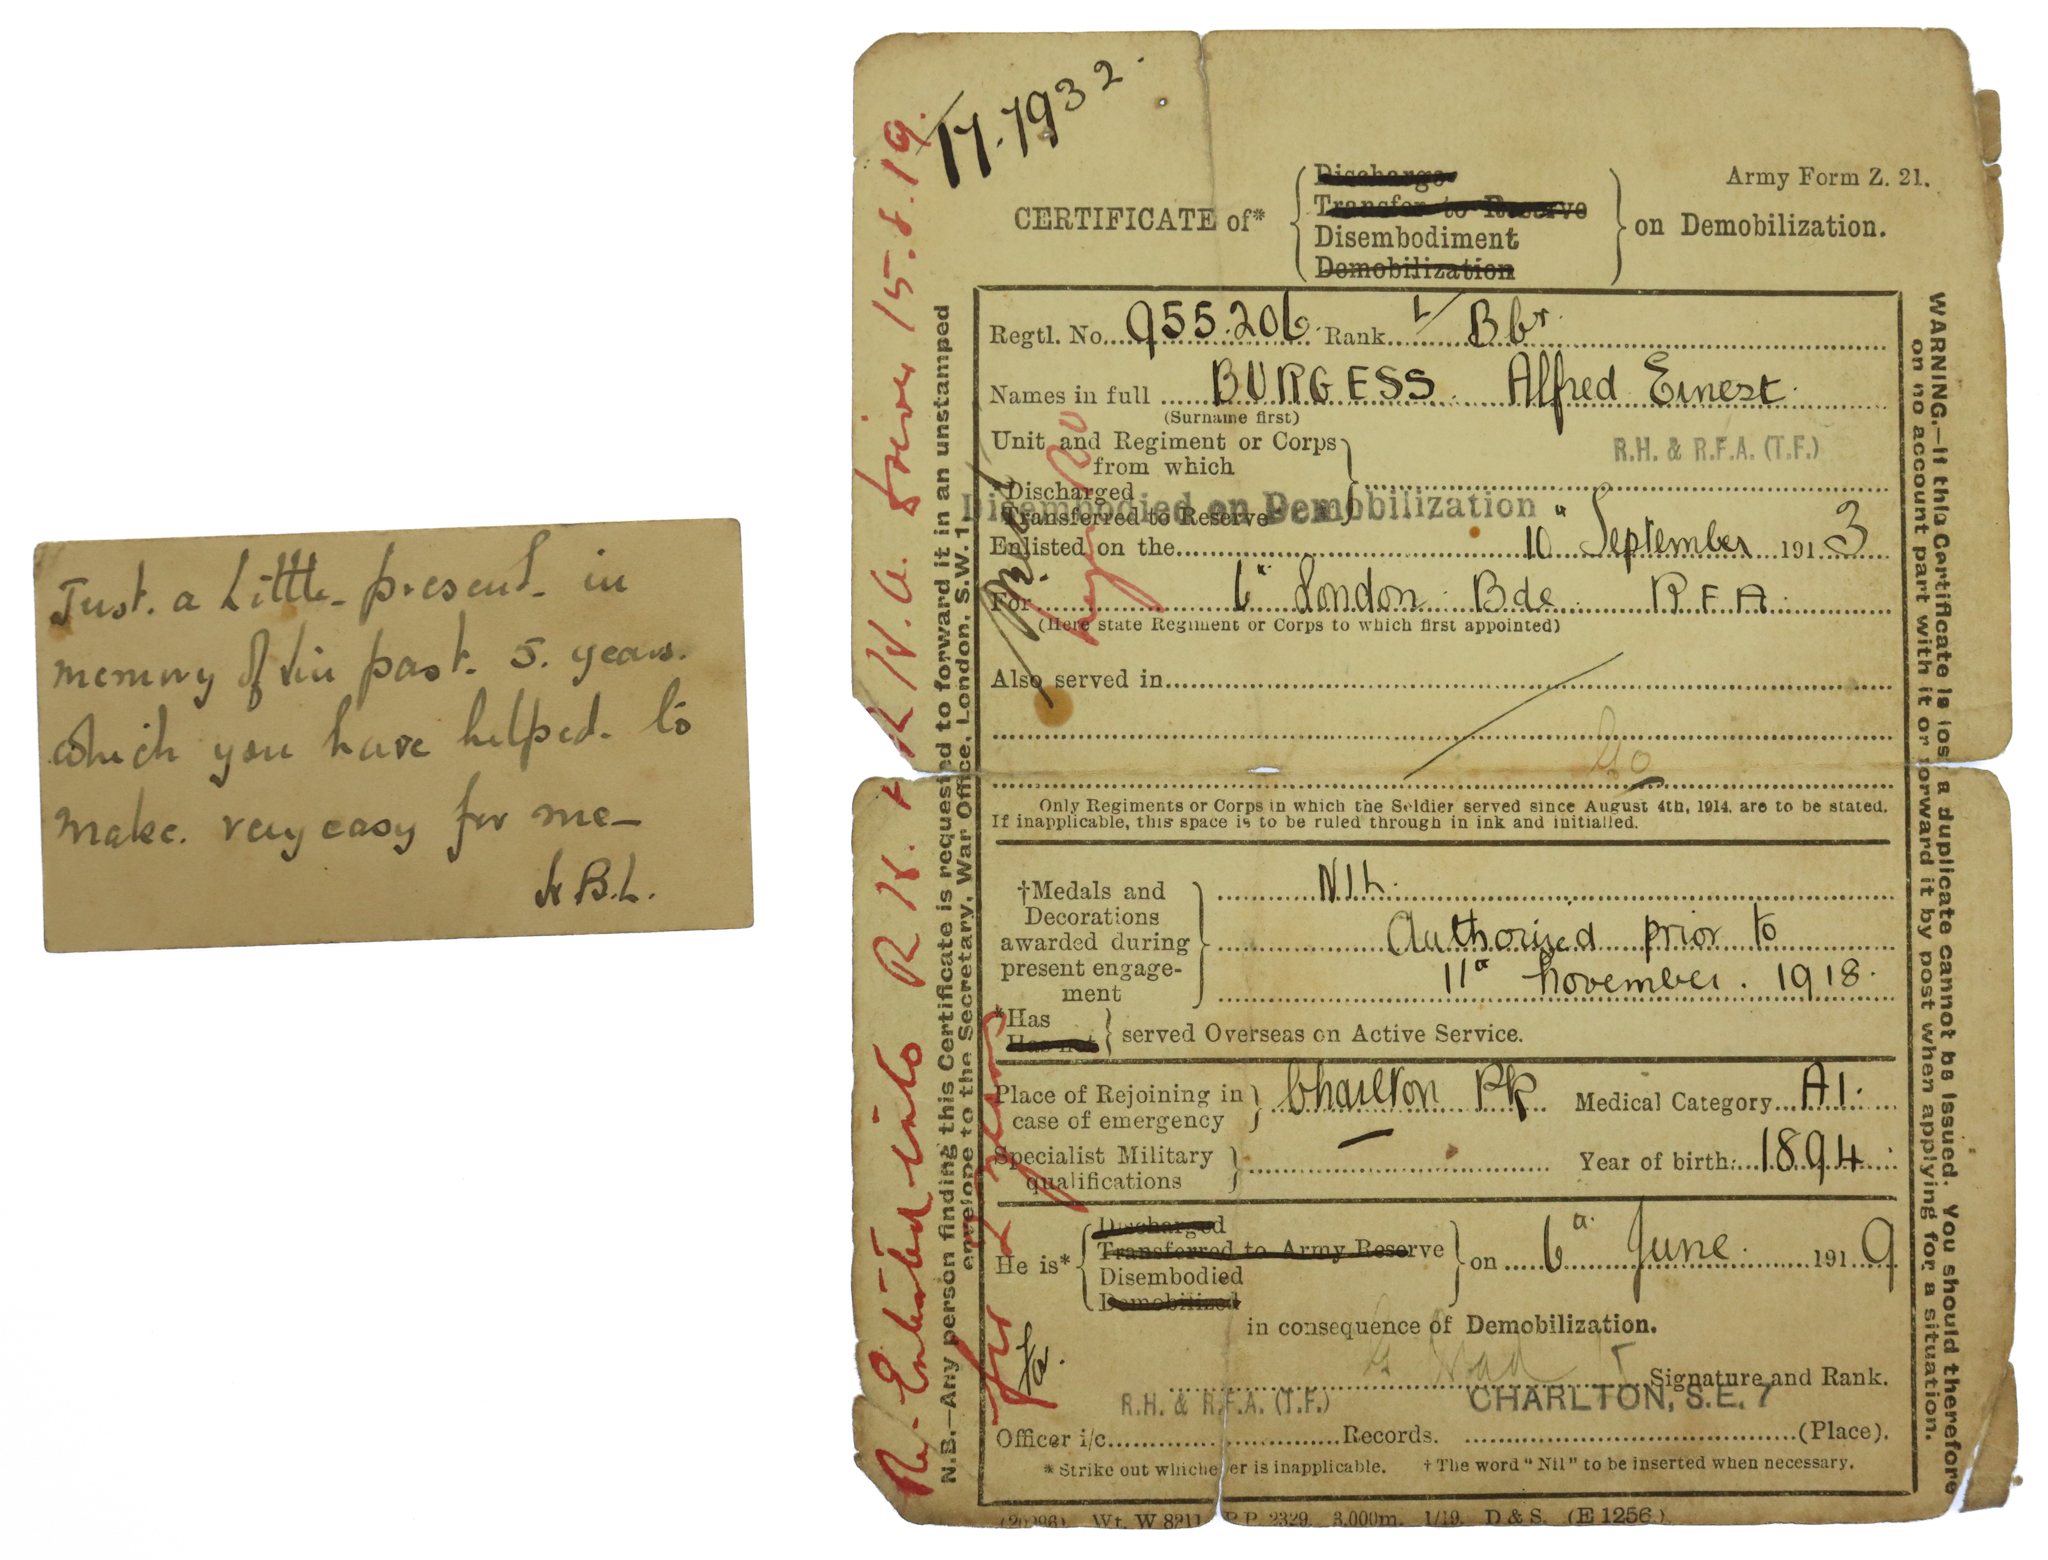 Just. a Little present. in
memory of the past. 5. years.
which you have helped. to
make. very easy for me—
B.L.
17.7932.
Army Form Z. 21.
CERTIFICATE of*
Discharge
Transfer to Reserve
Disembodiment
Demobilization
on Demobilization.
Regtl. No. 955.206. Rank L/Bbr.
Names in full BURGESS Alfred Ernest.
(Surname first)
Unit and Regiment or Corps
from which
R.H. & R.F.A. (T.F.)
*Discharged
Disembodied on Demobilization
Transferred to Reserve
Enlisted on the 10" September 1913
For 6" London Bde R F A.
(Here state Regiment or Corps to which first appointed)
Also served in
Only Regiments or Corps in which the Soldier served since August 4th, 1914, are to be stated.
If inapplicable, this space is to be ruled through in ink and initialled.
†Medals and
Decorations
awarded during
present engage-
ment
NIL.
Authorised prior to
11" November. 1918.
*Has
Has not
served Overseas on Active Service.
Place of Rejoining in
case of emergency
Charlton Pk Medical Category A1.
Specialist Military
qualifications
— Year of birth 1894
He is*
Discharged
Transferred to Army Reserve
Disembodied
Demobilized
on 6" June. 1919
in consequence of Demobilization.
Signature and Rank.
R.H. & R.F.A. (T.F.) CHARLTON, S.E. 7
Officer i/c Records. (Place).
*Strike out whichever is inapplicable. †The word "Nil" to be inserted when necessary.
(20296) Wt. W 8211 P.P. 2329. 3,000m. 1/19. D & S. (E 1256.)
Re-Enlisted into R H. & R F.A. 15.8.19.
for 2 years
N.B.—Any person finding this Certificate is requested to forward it in an unstamped
envelope to the Secretary, War Office, London, S.W. 1.
WARNING.—If this Certificate is lost a duplicate cannot be issued. You should therefore
on no account part with it or forward it by post when applying for a situation.